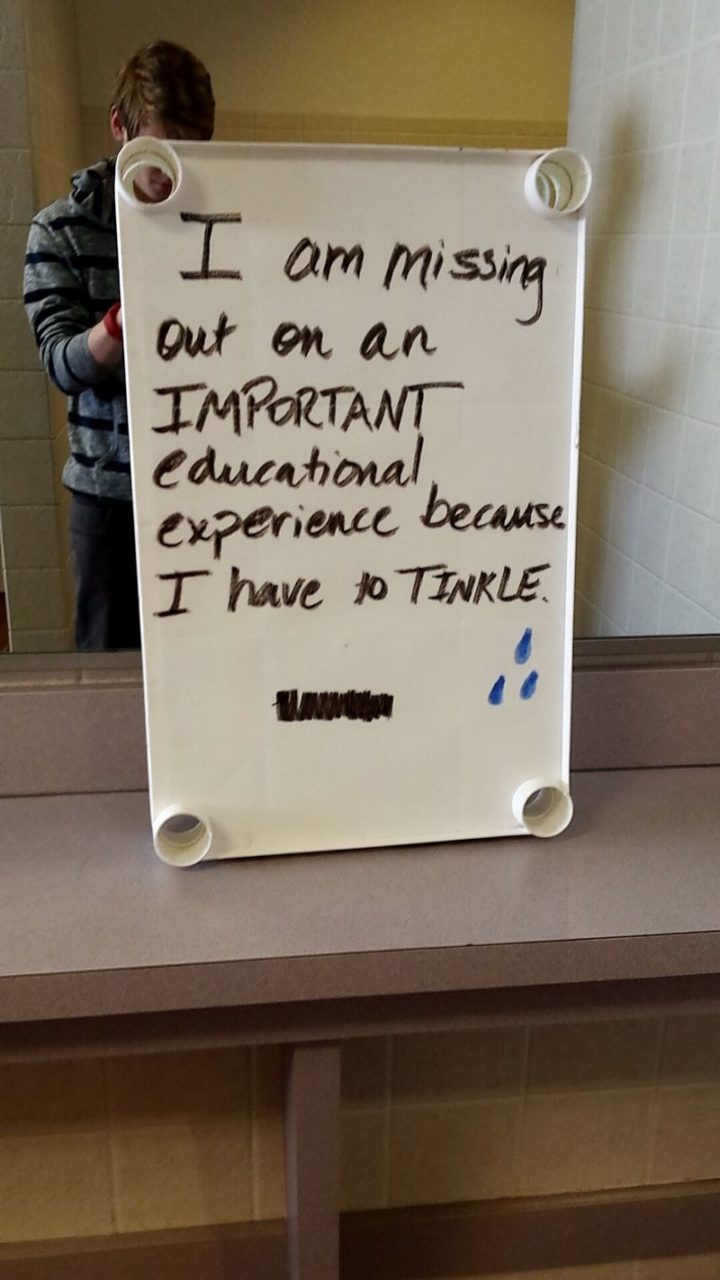 I am missing
out on an
IMPORTANT
educational
experience because
I have to TINKLE.